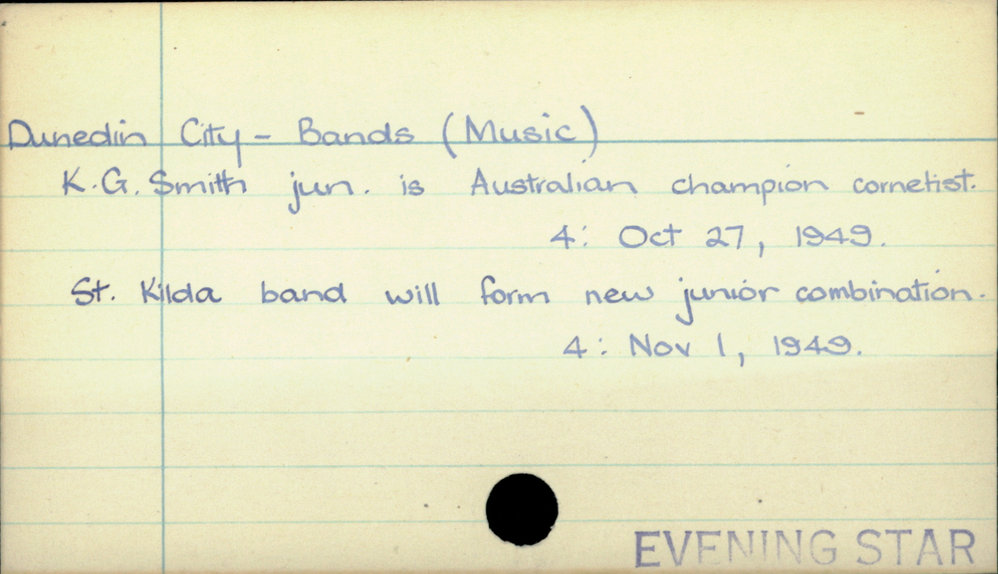 Dunedin City - Bands (Music)
K.G. Smith jun. is Australian champion cornetist.
4: Oct 27, 1949.
St. Kilda band will form new junior combination.
4: Nov 1, 1949.
EVENING STAR